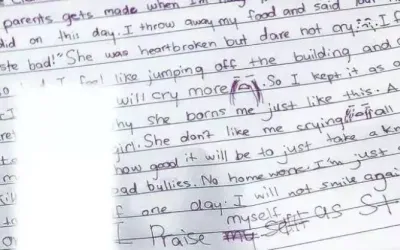 parents gets made when I'm
did on this day. I throw away my food and said your
ste bad!" She was heartbroken but dare not cry. I f
so I feel like jumping off the building and
will cry more. So I kept it as a
hy she barns me just like this. A
irl. She don't like me crying all
how good it will be to just take a kn
bad bullies. No home work. I'm just
f one day. I will not smile agai
myself
I Praise my self as St